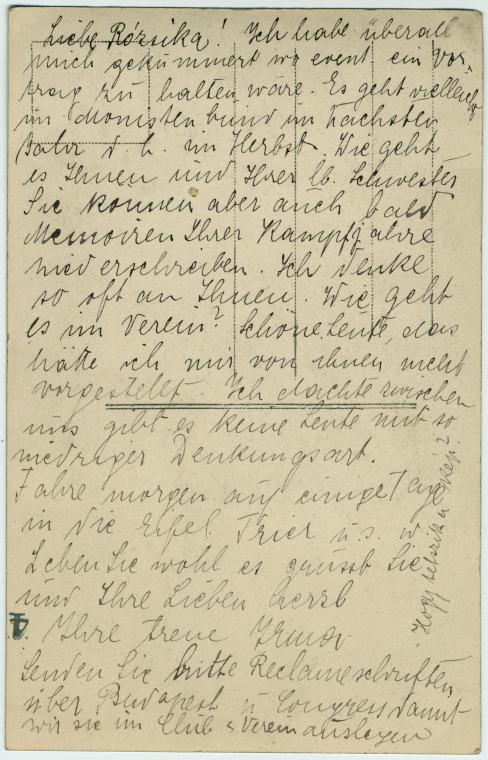 Liebe Rózsika! Ich habe überall
mich gekümmert wo event ein Vor-
trag zu halten wäre. Es geht vielleicht
im Monistenbund im nächsten
Jahr d. h. im Herbst. Wie geht
es Ihnen und Ihrer lb. Schwester
Sie können aber auch bald
Memoiren Ihrer Kampfjahre
niederschreiben. Ich denke
so oft an Ihnen. Wie geht
es im Verein? Schöne Leute, das
hätte ich mir von ihnen nicht
vorgestellt. Ich dachte zwischen
uns gibt es keine Leute mit so
niedriger Denkungsart.
Fahre morgen auf einige Tage
in die Eifel Trier u. s. w
Leben Sie wohl es grüsst Sie
und Ihre Lieben herzl
Ihre treue Irma
Senden Sie bitte Reclameschriften
über Budapest u Congress damit
wir sie im Club u Verein auslegen
Hogy tetszik a kép?